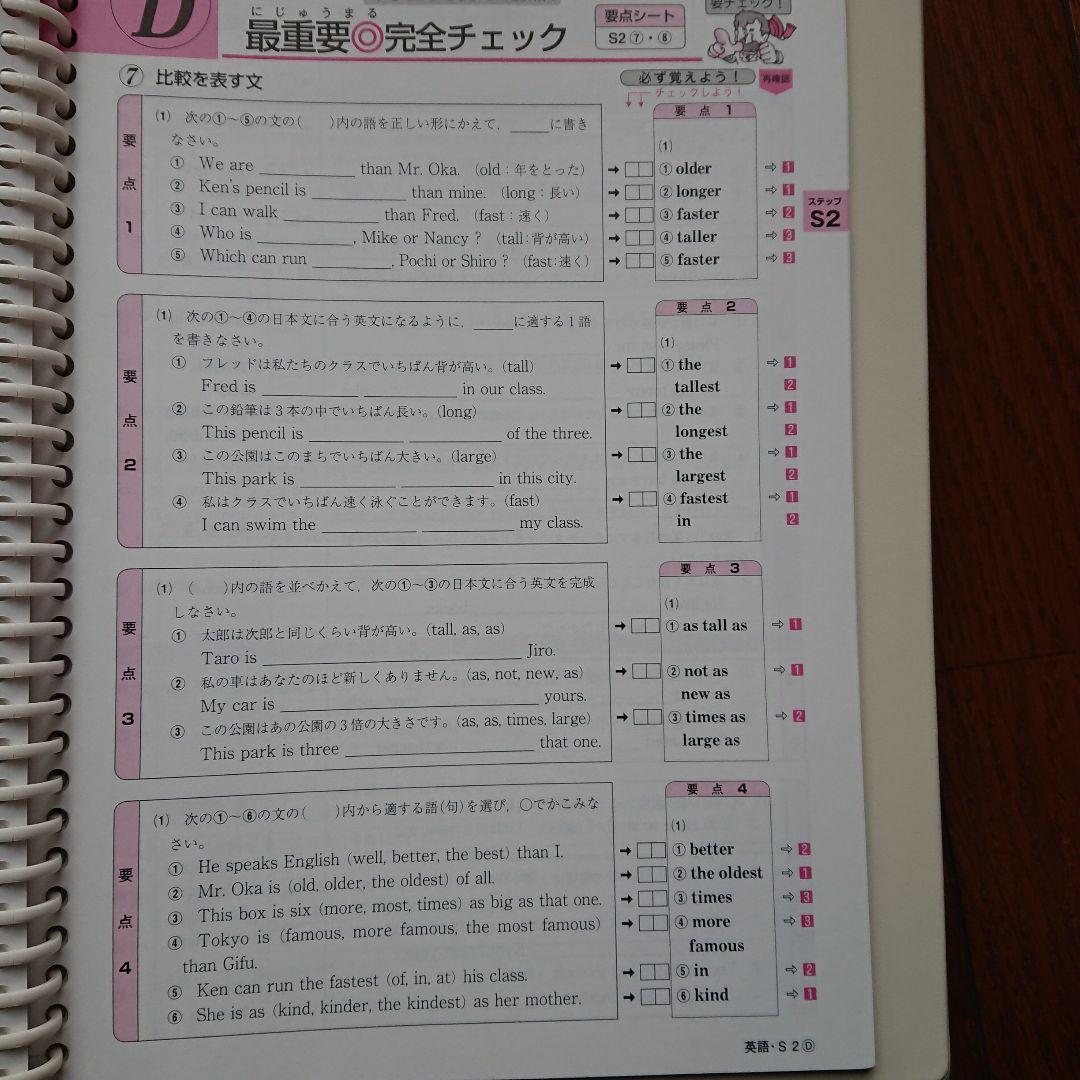 D
にじゅうまる
最重要◎完全チェック
要点シート
S2⑦・⑧
要チェック！
⑦ 比較を表す文
必ず覚えよう！
再確認
チェックしよう！
ステップ
S2
要点1
(1) 次の①～⑤の文の(　)内の語を正しい形にかえて，____に書き
なさい。
① We are ____ than Mr. Oka. (old：年をとった)
② Ken's pencil is ____ than mine. (long：長い)
③ I can walk ____ than Fred. (fast：速く)
④ Who is ____, Mike or Nancy ? (tall：背が高い)
⑤ Which can run ____, Pochi or Shiro ? (fast：速く)
要点1
(1)
① older ⇨ 1
② longer ⇨ 1
③ faster ⇨ 2
④ taller ⇨ 3
⑤ faster ⇨ 3
要点2
(1) 次の①～④の日本文に合う英文になるように，____に適する1語
を書きなさい。
① フレッドは私たちのクラスでいちばん背が高い。(tall)
Fred is ____ ____ in our class.
② この鉛筆は3本の中でいちばん長い。(long)
This pencil is ____ ____ of the three.
③ この公園はこのまちでいちばん大きい。(large)
This park is ____ ____ in this city.
④ 私はクラスでいちばん速く泳ぐことができます。(fast)
I can swim the ____ ____ my class.
要点2
(1)
① the ⇨ 1
tallest 2
② the ⇨ 1
longest 2
③ the ⇨ 1
largest 2
④ fastest ⇨ 1
in 2
要点3
(1) (　)内の語を並べかえて，次の①～③の日本文に合う英文を完成
しなさい。
① 太郎は次郎と同じくらい背が高い。(tall, as, as)
Taro is ____ Jiro.
② 私の車はあなたのほど新しくありません。(as, not, new, as)
My car is ____ yours.
③ この公園はあの公園の3倍の大きさです。(as, as, times, large)
This park is three ____ that one.
要点3
(1)
① as tall as ⇨ 1
② not as ⇨ 1
new as
③ times as ⇨ 2
large as
要点4
(1) 次の①～⑥の文の(　)内から適する語(句)を選び，○でかこみな
さい。
① He speaks English (well, better, the best) than I.
② Mr. Oka is (old, older, the oldest) of all.
③ This box is six (more, most, times) as big as that one.
④ Tokyo is (famous, more famous, the most famous)
than Gifu.
⑤ Ken can run the fastest (of, in, at) his class.
⑥ She is as (kind, kinder, the kindest) as her mother.
要点4
(1)
① better ⇨ 2
② the oldest ⇨ 1
③ times ⇨ 3
④ more ⇨ 3
famous
⑤ in ⇨ 2
⑥ kind ⇨ 1
英語・S2Ⓓ